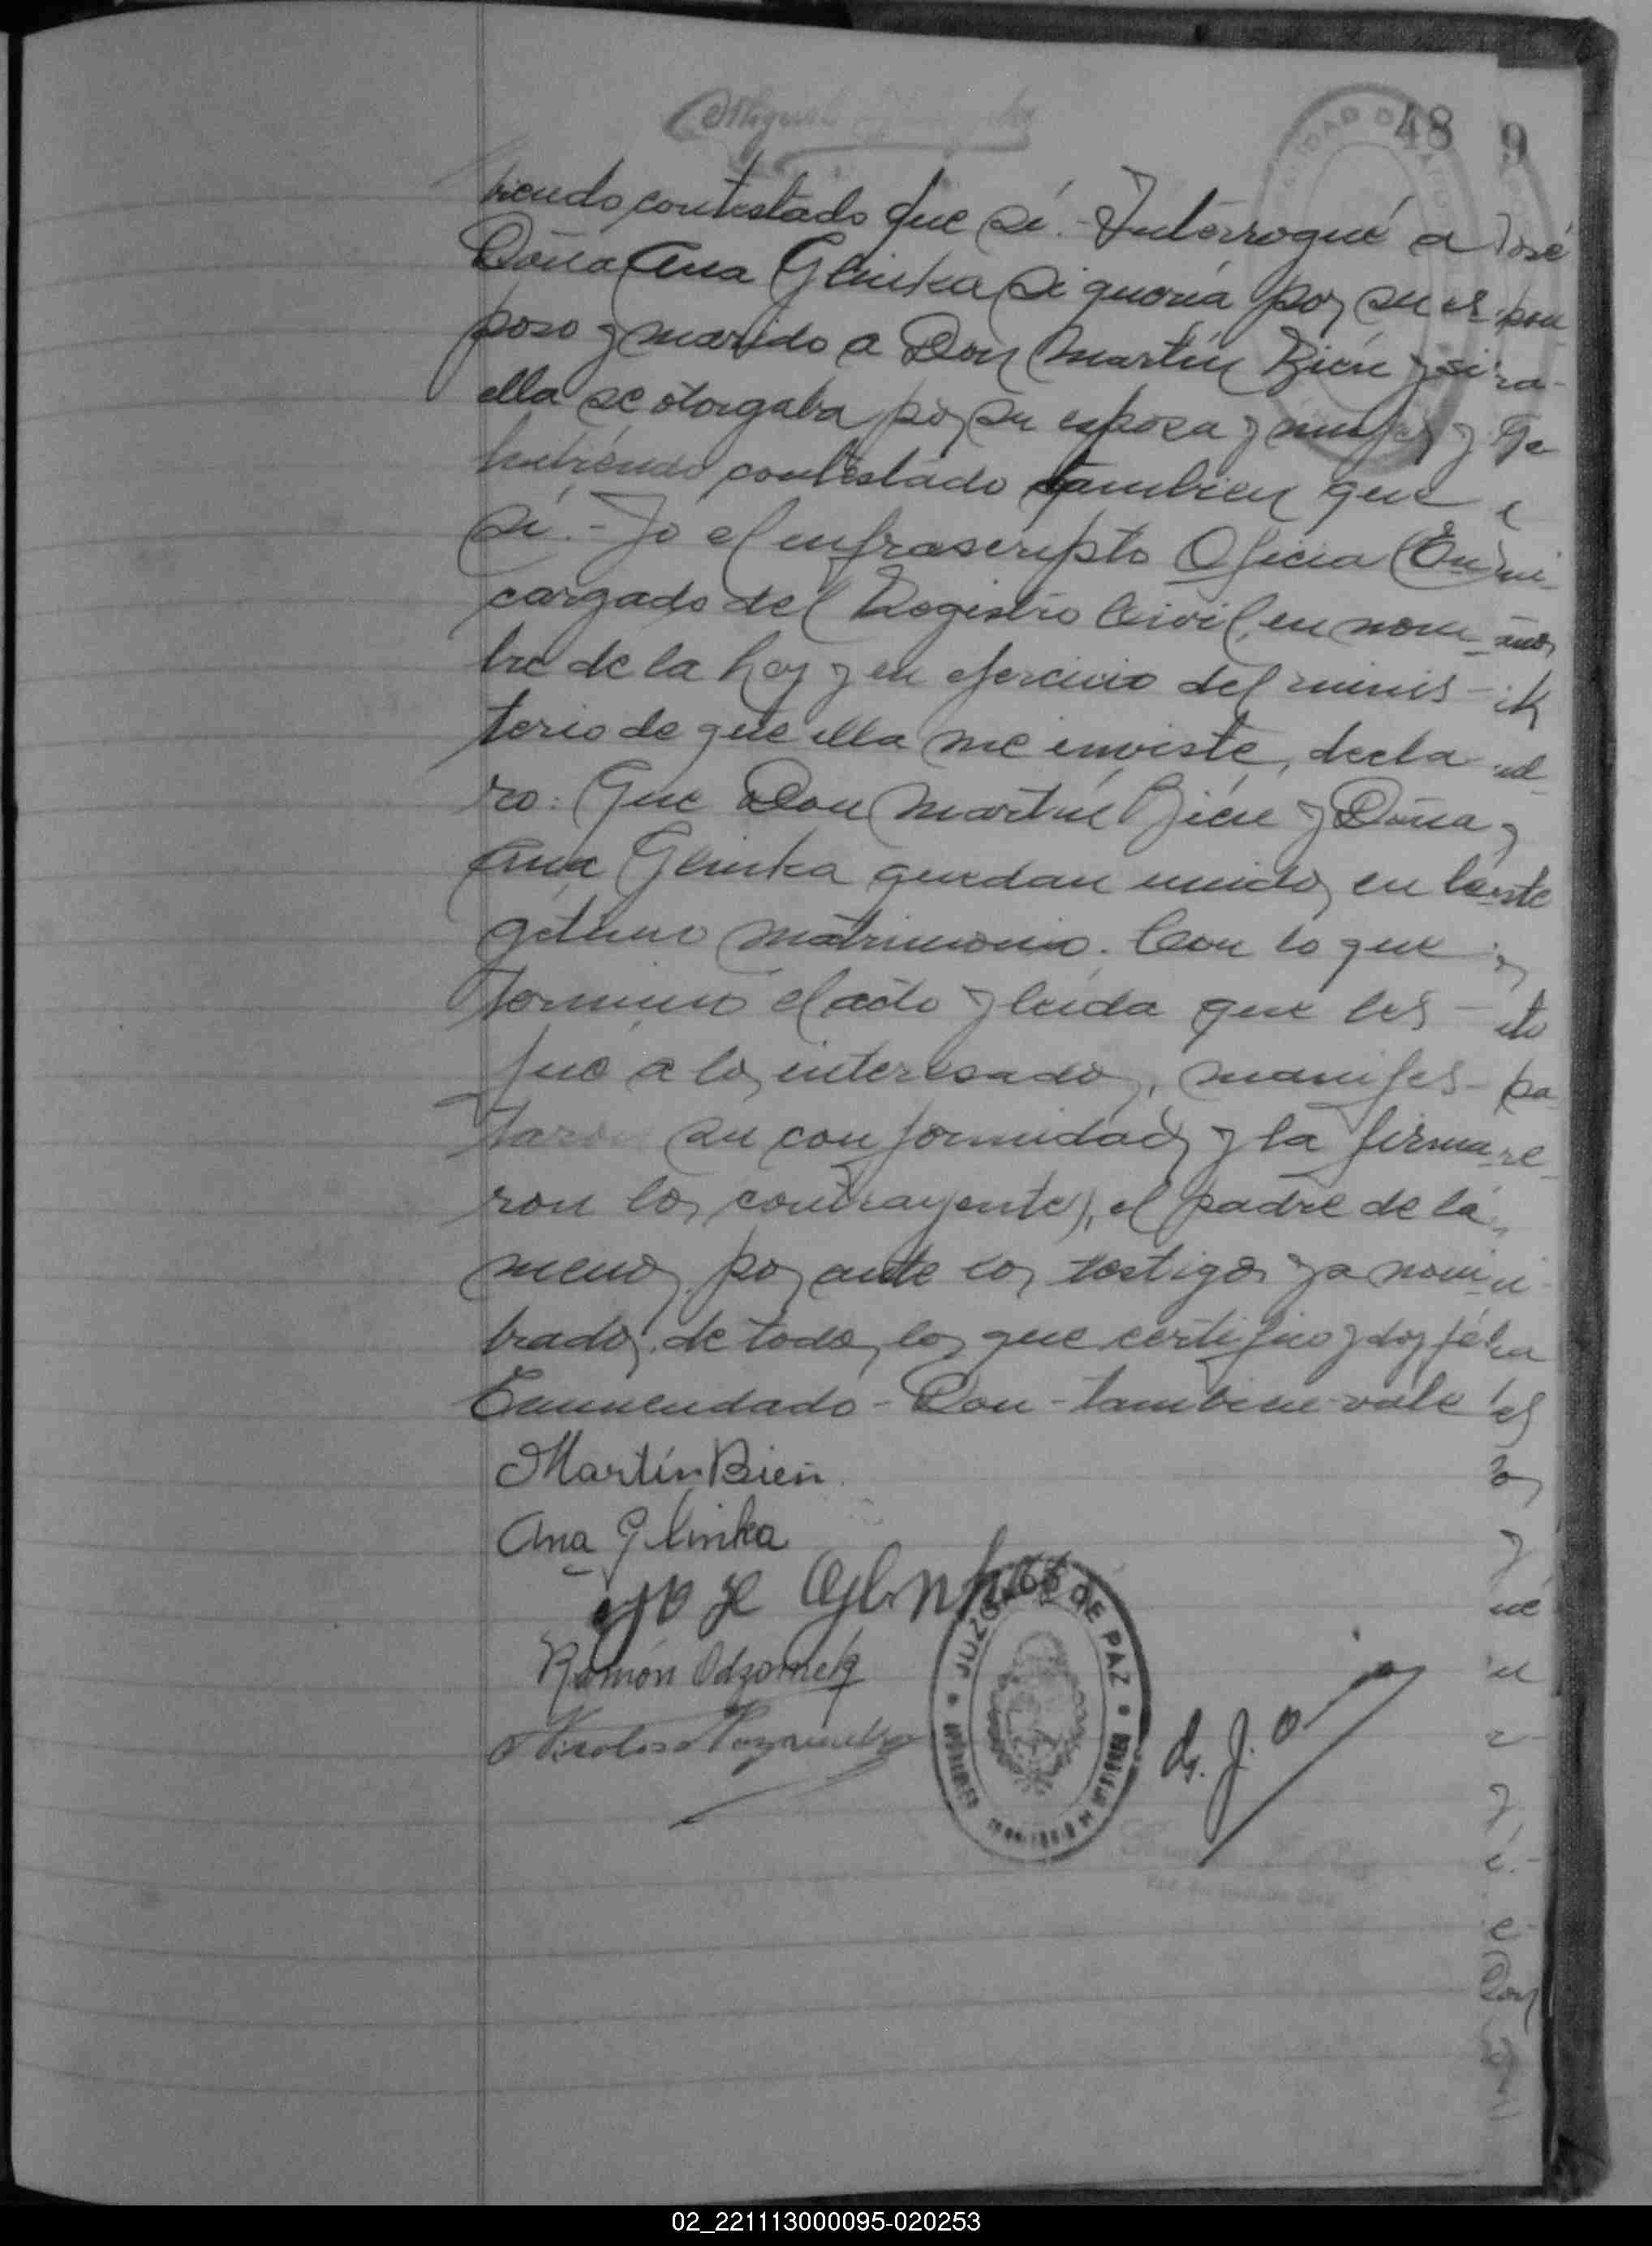 Miguel
48 9
biendo contestado que sí.- Interrogué a
Doña Ana Glinka si quería por su es-
poso y marido a Don Martín Bién y si a
ella se otorgaba por su esposa y mujer y
hubiendo contestado tambien que
sí.- Yo el infrascripto Oficia En-
cargado del Registro Civil, en nom-
bre de la Ley y en ejercicio del minis-
terio de que ella me inviste, decla-
ro: Que Don Martín Bién y Doña
Ana Glinka quedan unidos en le-
gítimo matrimonio. Con lo que
terminó el acto y leída que les
fué a los interesados, manifes-
taron su conformidad y la firma-
ron los contrayentes, el padre de la
menor por ante los testigos ya nom-
brados, de todo lo que certifico y doy fé.
Enmendado - Don - tambien - vale
Martín Bien
Ana Glinka
Ramón Odzomek
JUZGADO DE PAZ
José
pa
re
02_221113000095-020253